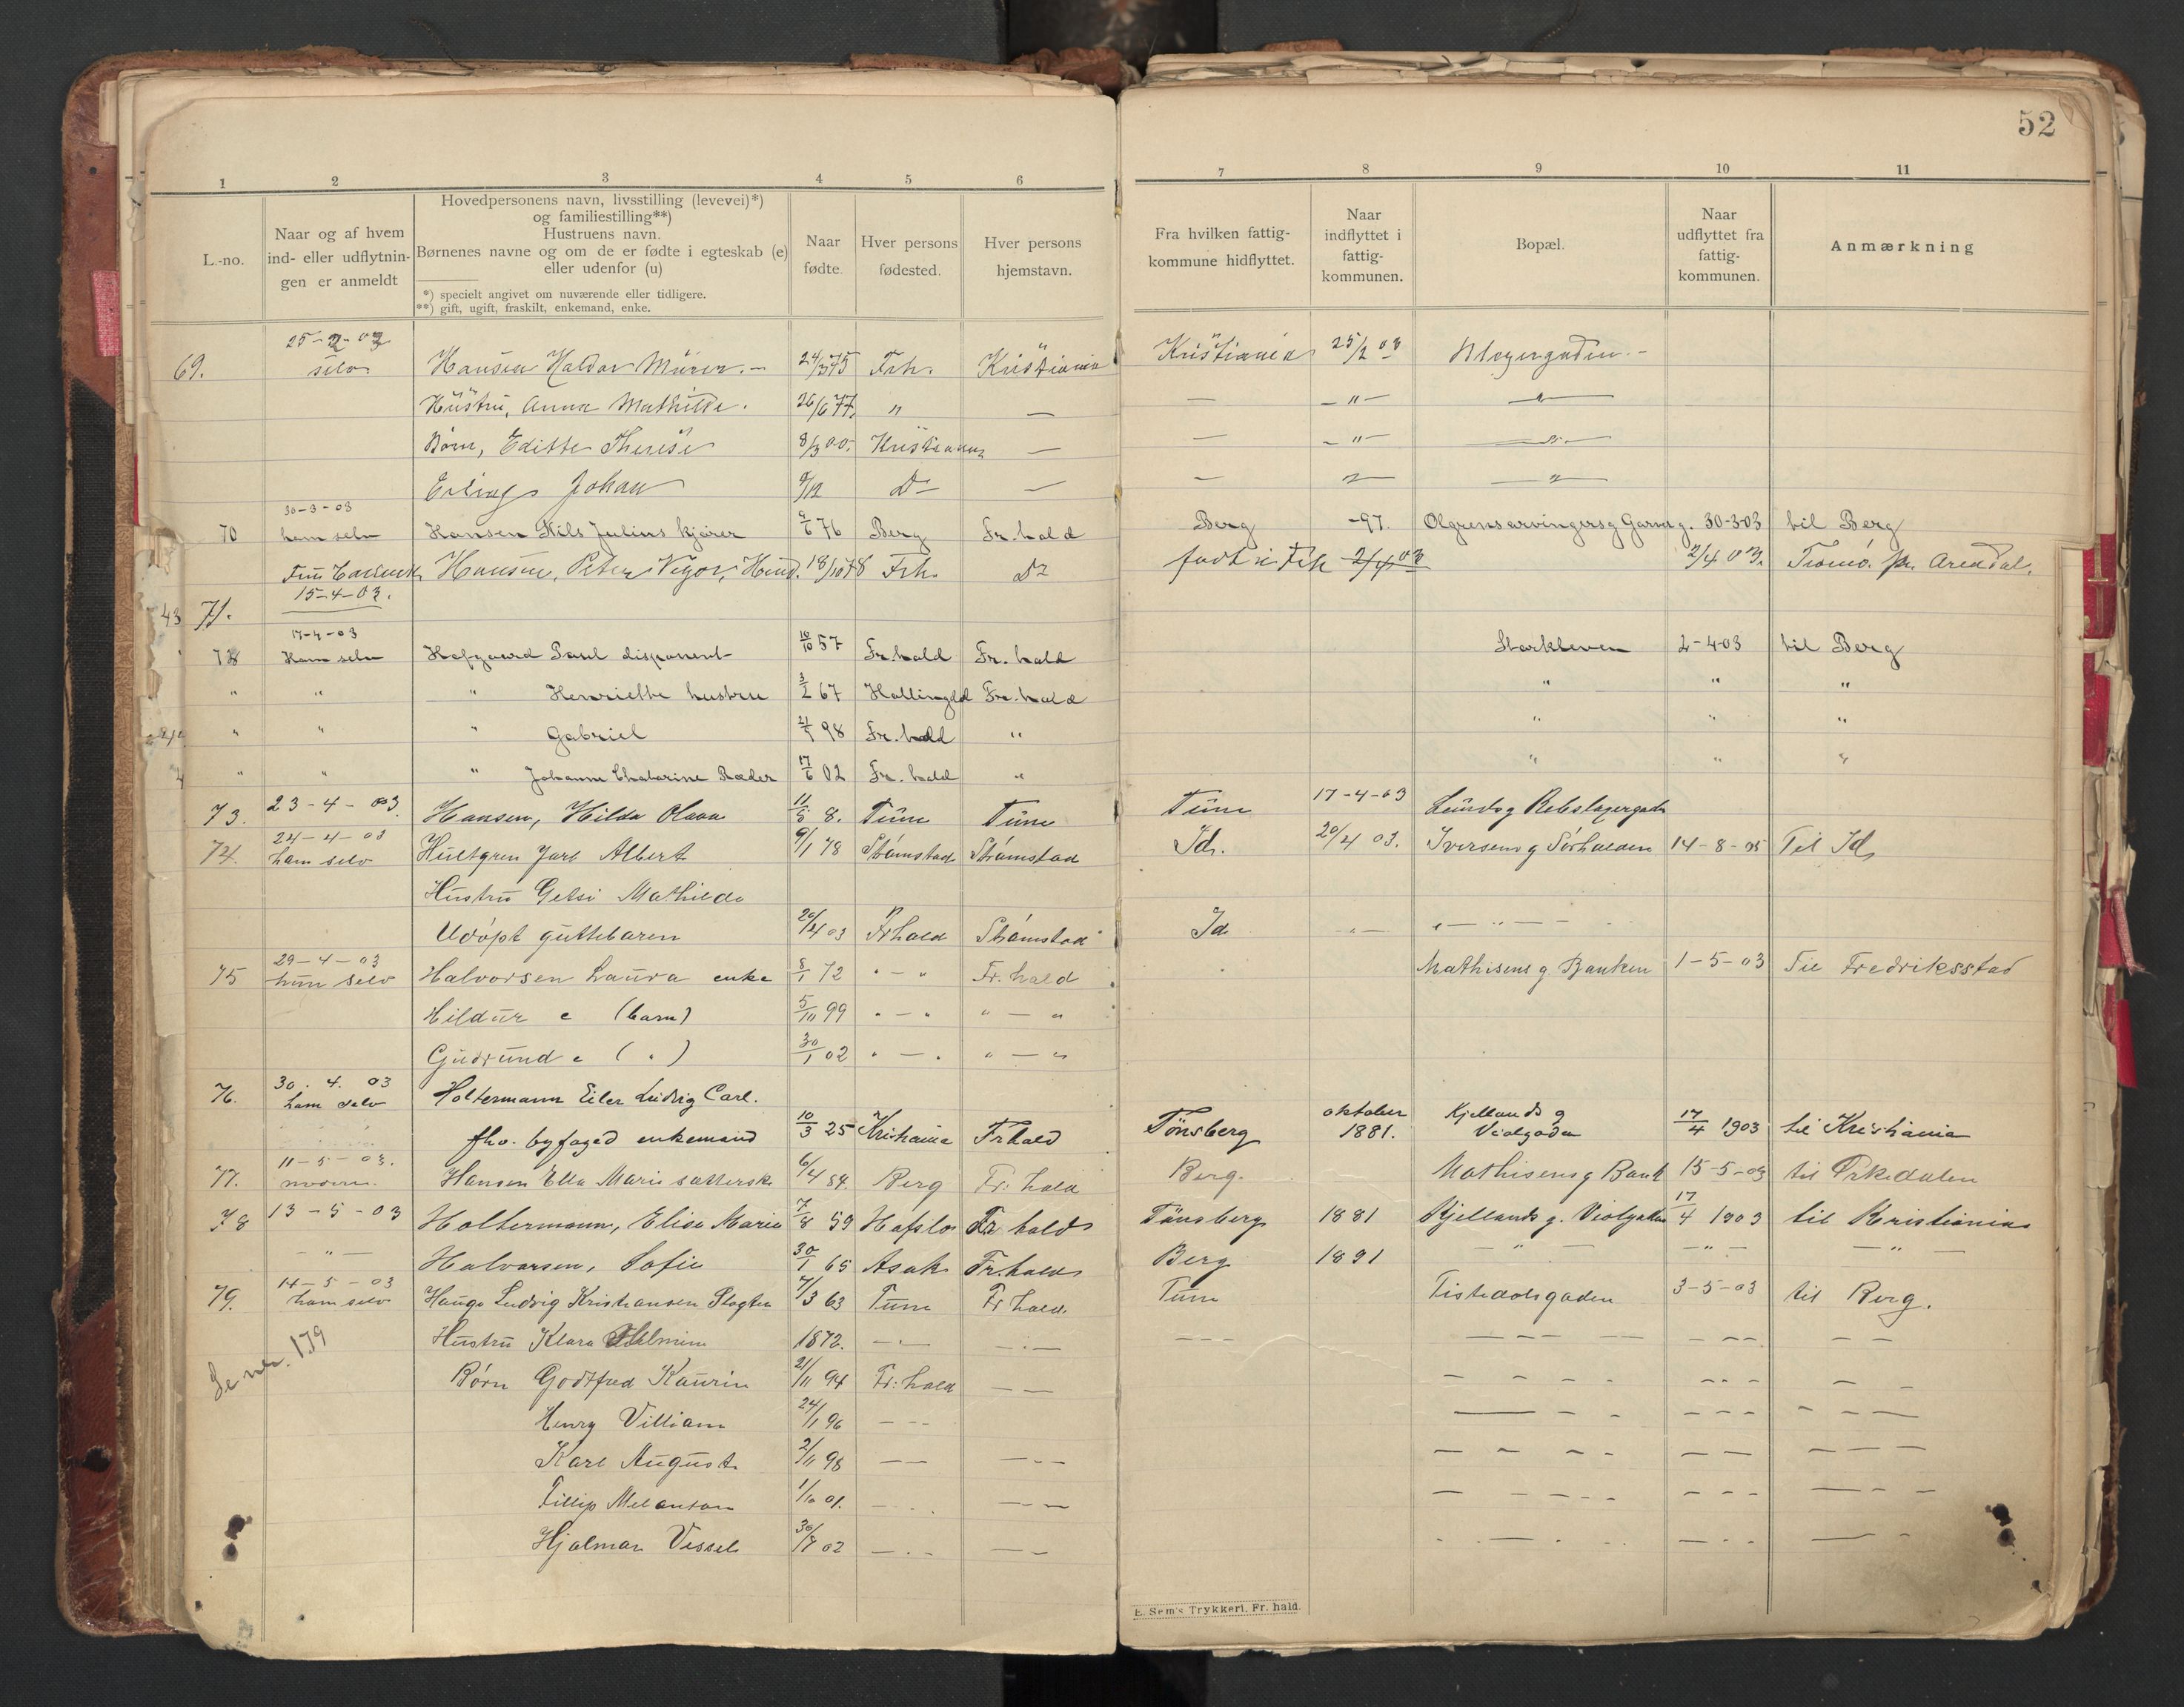 52
1 2 3 4 5 6 7 8 9 10 11
L.-no.
Naar og af hvem
ind- eller udflytnin-
gen er anmeldt
Hovedpersonens navn, livsstilling (levevei)*)
og familiestilling**)
Hustruens navn.
Børnenes navne og om de er fødte i egteskab (e)
eller udenfor (u)
*) specielt angivet om nuværende eller tidligere.
**) gift, ugift, fraskilt, enkemand, enke.
Naar
fødte.
Hver persons
fødested.
Hver persons
hjemstavn.
Fra hvilken fattig-
kommune hidflyttet.
Naar
indflyttet i
fattig-
kommunen.
Bopæl.
Naar
udflyttet fra
fattig-
kommunen.
Anmærkning
25-2-03
69. selv Hansen Haldor Murer.- 24/3 75 Frh. Kristiania Kristiania 25/2 03
Hustru, Anna Mathilde. 26/6 77. " — — - " -
Børn, Edithe Therese 8/3 00. Kristiania — — - " -
Erling Johan Do — —
30-3-03
70 ham selv Hansen Nils Julius kjører 9/6 76 Berg Fr. hald Berg -97. Olgrensarvingersg Garverg. 30-3-03 til Berg
Hansen, Peter Vigor, 18/10 78 Frh. Do født i Frh 2/4 03 2/4 03. Tromö. pr. Arendal.
15-4-03.
43 71.
17-4-03
72 Ham selv Hofgaard Paul disponent 10/10 57 Fr.hald Fr. hald Storkleven 2-4-03 til Berg
" " " Henriette hustru 3/2 67 Hallingdal Fr. hald " " "
" " " Gabriel 21/1 98 Fr. hald " " " "
" " " Johanne Chatarine Ræder 17/6 02 Fr. hald " " " "
73. 23-4-03. Hansen, Hilda Olava 11/5 8. Tune Tune Tune 17-4-03 Lundsg Rebslagergade
24-4-03
74. ham selv Hultgren Jarl Albert 9/1 78 Strömstad Strömstad Id. 20/4 03. Iversensg Sørhalden 14-8-05 Til Id
Hustru Gelsi Mathilde
Udöpt guttebarn 20/4 03 Frhald Strömstad Id
29-4-03
75 hun selv Halvorsen Laura enke 8/1 72 " - " Fr. hald Mathisens g Banken 1-5-03 Til Fredriksstad
Hildur e (barn) 5/11 99 " - " " — "
Gudrund e ( " ) 30/1 02 " - " " — "
30. 4. 03
76. ham selv Holtermann Eiler Ludvig Carl.
fhv. byfoged enkemand 10/3 25 Kristiania Frhald Tönsberg oktober 1881. Kjellands g Violgaden 17/4 1903 til Kristiania
11-5-03.
77. Hansen Ella Marie 6/4 84. Berg Fr: hald Berg. Mathisens g Bank 15-5-03 til Orkedalen
78 13-5-03 Holtermann, Elise Marie 7/8 59 Hafslo Fr halds Tönsberg 1881 Kjellands g. Violgaden 17/4 1903 til Kristiania
- " - Halvorsen, Sofie 30/1 65 Asak Fr.halds Berg 1891 — " — — " — — " —
14-5-03
79. ham selv Hauge Ludvig Kristiansen Slagter 7/3 63 Tune Fr hald. Tune Tistedalsgaden 3-5-03 til Berg.
Se nr. 139
Hustru Klara 1872. — " — — . — — — — — — — — — — — —
Børn Godtfred Kaurin 21/11 94 Fr: hald — — — — — — — — — — —
Henry Villiam 24/1 96 — — — — — — — — — — — — —
Karl August 2/11 98 — — — — — — — — — — — — — —
Fillip Melanton 1/10 01. — — — — — — — — — — — — —
Hjalmar Vessel 30/8 02 — — — — — — — — — — —
E. Sem's Trykkeri, Fr. hald.